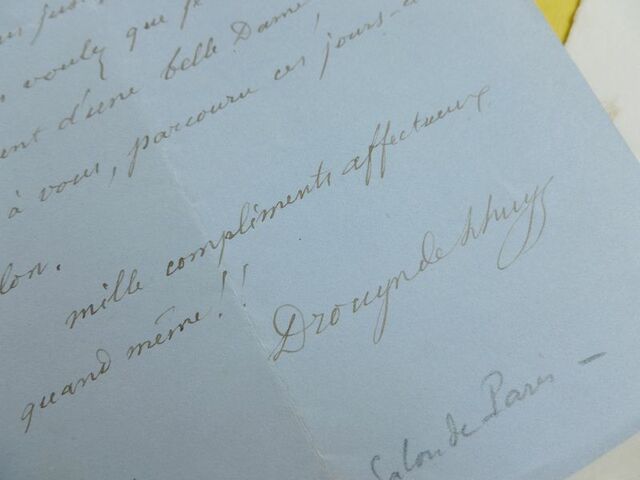 voulu que
d'une belle Dame
à vous, parcouru ces jours-
lon.
mille compliments affectueux
quand même!!
Drouyn de Lhuys
Salon de Paris -